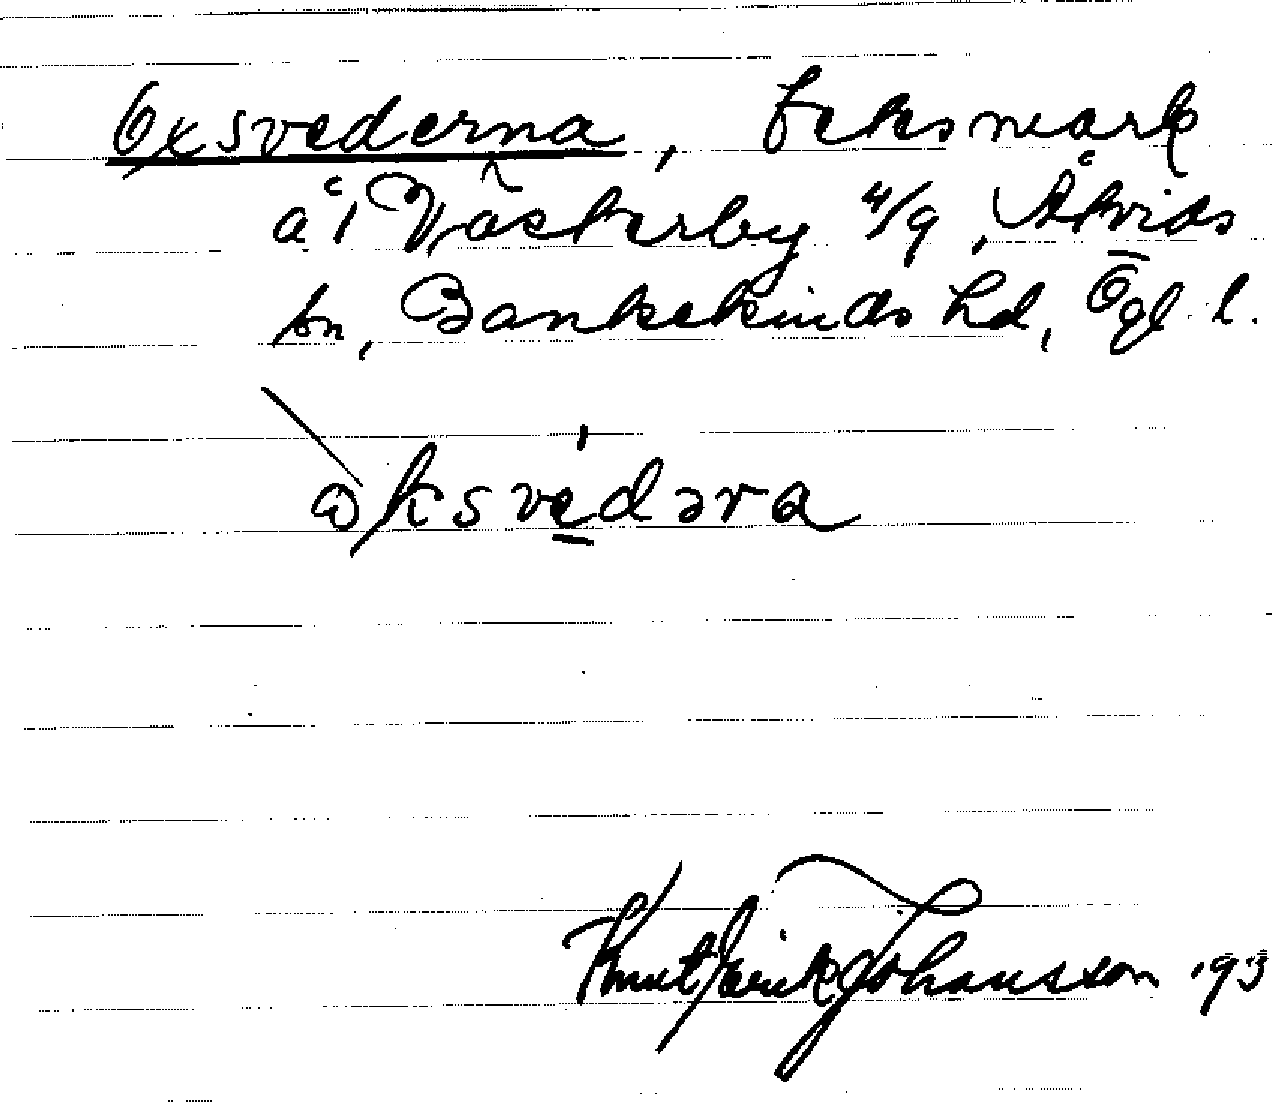 Oxsvederna, betesmark
å Västerby 4/9, Åtvids
sn, Bankekinds hd, Ögl. l.
ɷksvedəra
Knut Erik Johansson 193